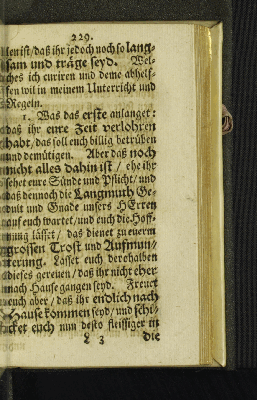 229.
len ist/ daß ihr jedoch noch so lang-
sam und träge seyd. Wel-
ches ich curiren und deme abhelf-
fen wil in meinem Unterricht und
Regeln.
1. Was das erste anlanget:
daß ihr eure Zeit verlohren
habt/ das soll euch billig betrüben
und demütigen. Aber daß noch
nicht alles dahin ist / ehe ihr
sehet eure Sünde und Pflicht/ und
daß dennoch die Langmuth Ge-
dult und Gnade unsers HErren
auf euch wartet/ und euch die Hoff-
nung lässet/ das dienet zu euerm
grossen Trost und Aufmun-
terung. Lasset euch derohalben
dieses gereuen/ daß ihr nicht eher
nach Hause gangen seyd. Freuet
euch aber/ daß ihr endlich nach
Hause kommen seyd/ und schi-
cket euch nun desto fleissiger in
L 3 die